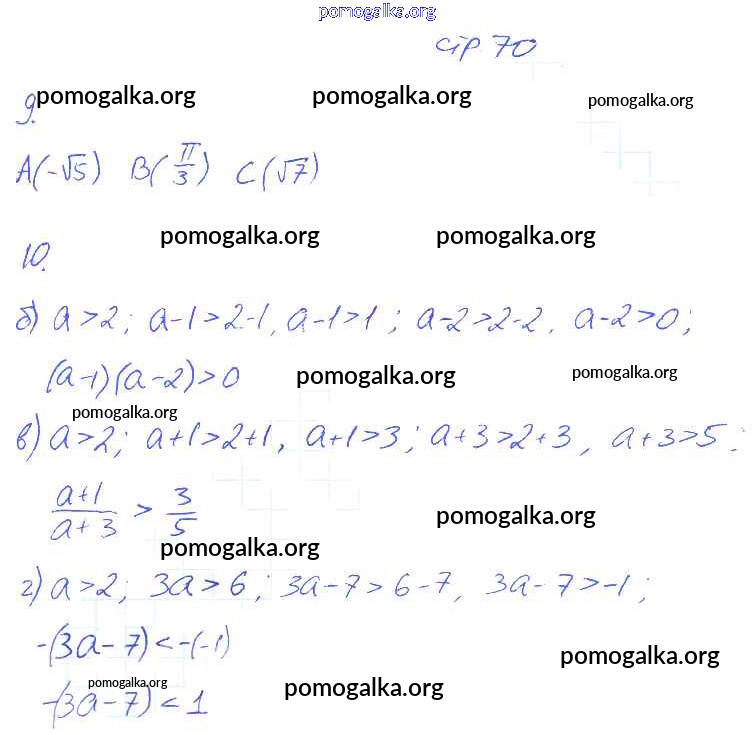 pomogalka.org
стр 70
9. pomogalka.org pomogalka.org pomogalka.org
A(-√5) B(π/3) C(√7)
10. pomogalka.org pomogalka.org
б) a>2; a-1>2-1, a-1>1; a-2>2-2, a-2>0;
(a-1)(a-2)>0 pomogalka.org pomogalka.org
pomogalka.org
в) a>2; a+1>2+1, a+1>3; a+3>2+3, a+3>5;
(a+1)/(a+3) > 3/5 pomogalka.org
pomogalka.org
г) a>2; 3a>6; 3a-7>6-7, 3a-7>-1;
-(3a-7)<-(-1) pomogalka.org
pomogalka.org pomogalka.org
-(3a-7)<1